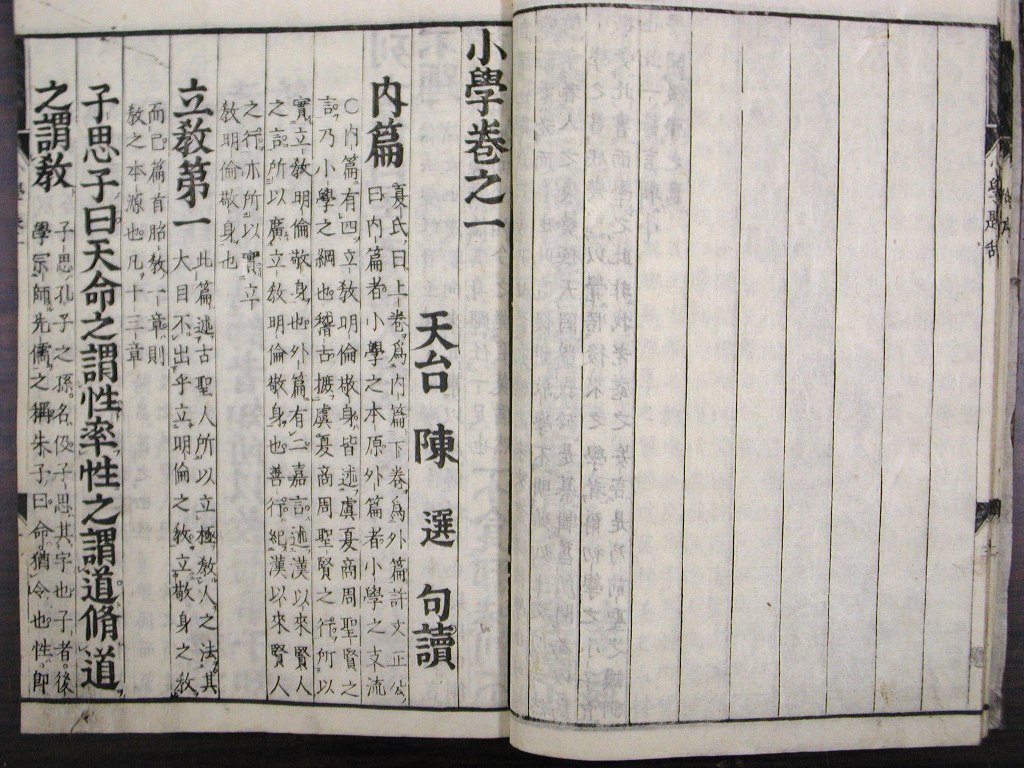 小學卷之一
天台 陳 選 句讀
內篇
夏氏曰上卷爲內篇下卷爲外篇許文正公
曰內篇者小學之本原外篇者小學之支流
○內篇有四立敎明倫敬身皆述虞夏商周聖賢之
言乃小學之綱也稽古摭虞夏商周聖賢之行所以
實立敎明倫敬身也外篇有二嘉言述漢以來賢人
之言所以廣立敎明倫敬身也善行紀漢以來賢人
之行亦所以實立
敎明倫敬身也
立敎第一
此篇述古聖人所以立極敎人之法其
大目不出乎立明倫之敎立敬身之敎
而已篇首胎敎一章則
敎之本源也凡十三章
子思子曰天命之謂性率性之謂道脩道
之謂敎
子思孔子之孫名伋子思其字也子者後
學宗師先儒之稱朱子曰命猶令也性卽